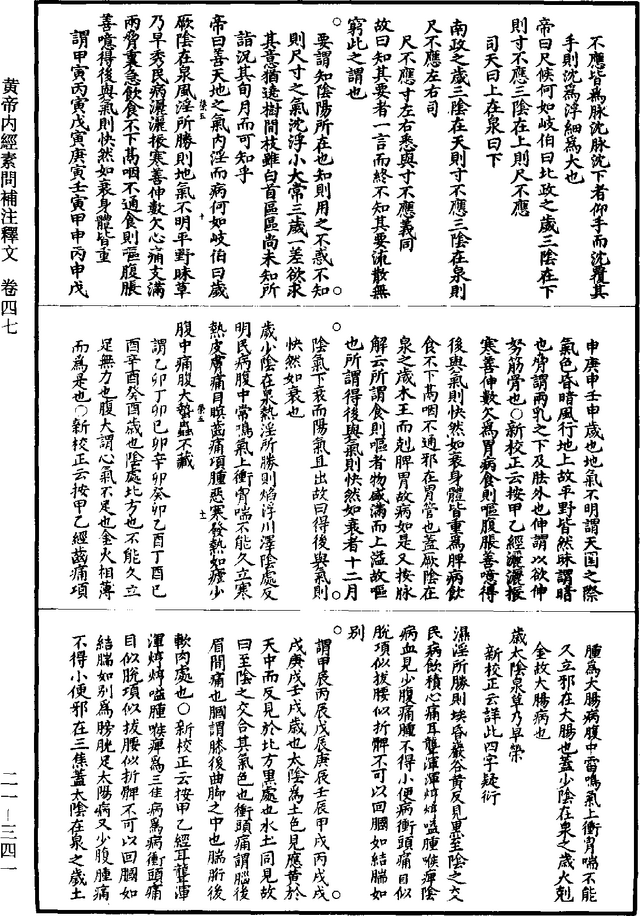 不應皆爲脉沈脉沈下者仰手而沈覆其
手則沈爲浮細爲大也
帝曰尺候何如岐伯曰北政之歲三陰在下
則寸不應三陰在上則尺不應
司天曰上在泉曰下
南政之歲三陰在天則寸不應三陰在泉則
尺不應左右同
尺不應寸左右悉與寸不應義同
故曰知其要者一言而終不知其要流散無
窮此之謂也
要謂知陰陽所在也知則用之不惑不知
則尺寸之氣沈浮小大常三歲一差欲求
其意猶遶樹問枝雖白首區區尚未知所
詣況其旬月而可知乎
帝曰善天地之氣內淫而病何如岐伯曰歲
厥陰在泉風淫所勝則地氣不明平野昧草
乃早秀民病灑灑振寒善伸數欠心痛支滿
兩脅裏急飲食不下鬲咽不通食則嘔腹脹
善噫得後與氣則快然如衰身體皆重
謂甲寅丙寅戊寅庚寅壬寅甲申丙申戊
申庚申壬申歲也地氣不明謂天圍之際
氣色昏暗風行地上故平野皆然昧謂暗
也脅謂兩乳之下及胠外也伸謂以欲伸
努筋骨也○新校正云按甲乙經灑灑振
寒善伸數欠爲胃病食則嘔腹脹善噫得
後與氣則快然如衰身體皆重爲脾病飲
食不下鬲咽不通邪在胃管也蓋厥陰在
泉之歲木王而剋脾胃故病如是又按脉
解云所謂食則嘔者物盛滿而上溢故嘔
也所謂得後與氣則快然如衰者十二月
陰氣下衰而陽氣且出故曰得後與氣則
快然如衰也
歲少陰在泉熱淫所勝則焰浮川澤陰處反
明民病腹中常鳴氣上衝胷喘不能久立寒
熱皮膚痛目瞑齒痛䪼腫惡寒發熱如瘧少
腹中痛腹大蟄蟲不藏
謂乙卯丁卯己卯辛卯癸卯乙酉丁酉己
酉辛酉癸酉歲也陰處北方也不能久立
足無力也腹大謂心氣不足也金火相薄
而爲是也○新校正云按甲乙經齒痛䪼
腫爲大腸病腹中雷鳴氣上衝胷喘不能
久立邪在大腸也蓋少陰在泉之歲火剋
金故大腸病也
歲太陰泉草乃早榮
新校正云詳此四字疑衍
濕淫所勝則埃昏巖谷黃反見黑至陰之交
民病飲積心痛耳聾渾渾焞焞嗌腫喉痺陰
病血見少腹痛腫不得小便病衝頭痛目似
脫項似拔腰似折髀不可以回膕如結腨如
別
謂甲辰丙辰戊辰庚辰壬辰甲戌丙戌戊
戌庚戌壬戌歲也太陰爲土色見應黃於
天中而反見於北方黑處也水土同見故
曰至陰之交合其氣色也衝頭痛謂腦後
眉間痛也膕謂膝後曲腳之中也腨䯒後
軟肉處也○新校正云按甲乙經耳聾渾
渾焞焞嗌腫喉痺爲三焦病爲病衝頭痛
目似脫項似拔腰似折髀不可以回膕如
結腨如別爲膀胱足太陽病又少腹腫痛
不得小便邪在三焦蓋太陰在泉之歲土
黃帝內經素問補注釋文　卷四七
二一—三四一